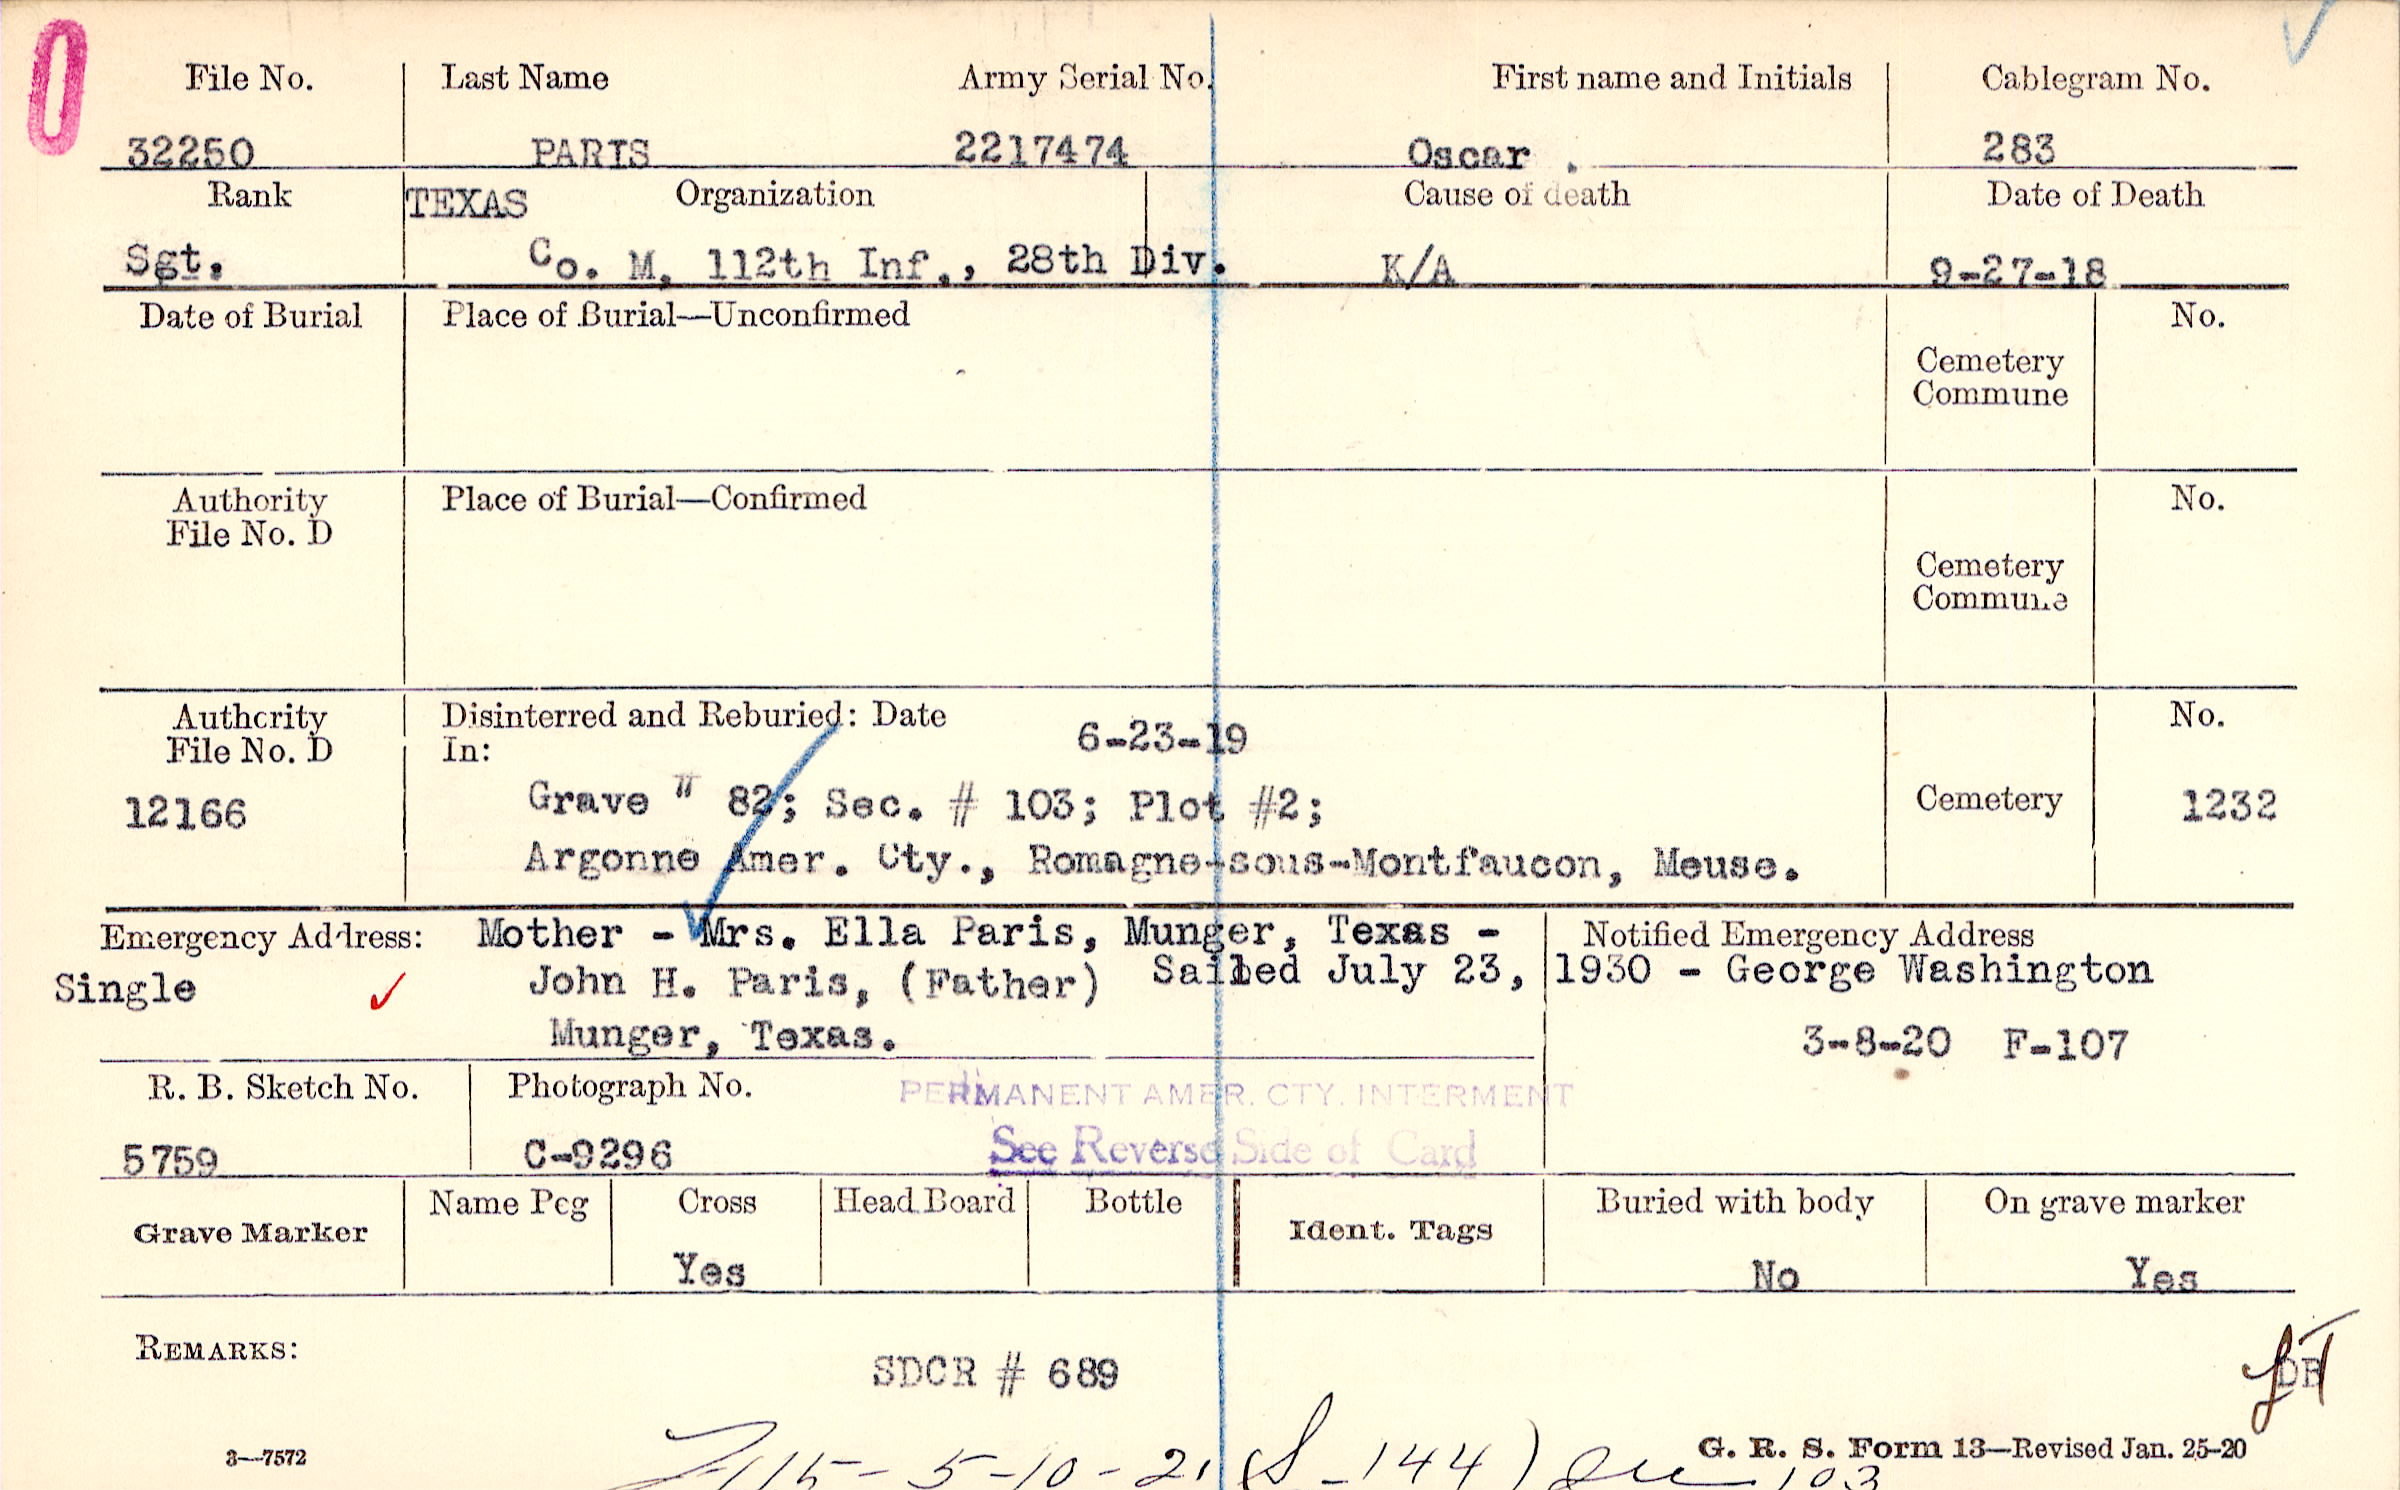 0
File No. Last Name Army Serial No. First name and Initials Cablegram No.
32250 PARIS 2217474 Oscar . 283
Rank TEXAS Organization Cause of death Date of Death
Sgt. Co. M, 112th Inf., 28th Div. K/A 9-27-18
Date of Burial Place of Burial—Unconfirmed No.
Cemetery
Commune
Authority Place of Burial—Confirmed No.
File No. D
Cemetery
Commune
Authority Disinterred and Reburied: Date 6-23-19 No.
File No. D In:
12166 Grave " 82; Sec. # 103; Plot #2; Cemetery 1232
Argonne Amer. Cty., Romagne-sous-Montfaucon, Meuse.
Emergency Address: Mother - Mrs. Ella Paris, Munger, Texas - Notified Emergency Address
Single John H. Paris, (Father) Sailed July 23, 1930 - George Washington
Munger, Texas. 3-8-20 F-107
R. B. Sketch No. Photograph No. PERMANENT AMER. CTY. INTERMENT
5759 C-9296 See Reverse Side of Card
Grave Marker Name Peg Cross Head Board Bottle Ident. Tags Buried with body On grave marker
Yes No Yes
REMARKS:
SDCR # 689
3—7572 G. R. S. Form 13—Revised Jan. 25-20
115 - 5-10-21 (S-144) 103